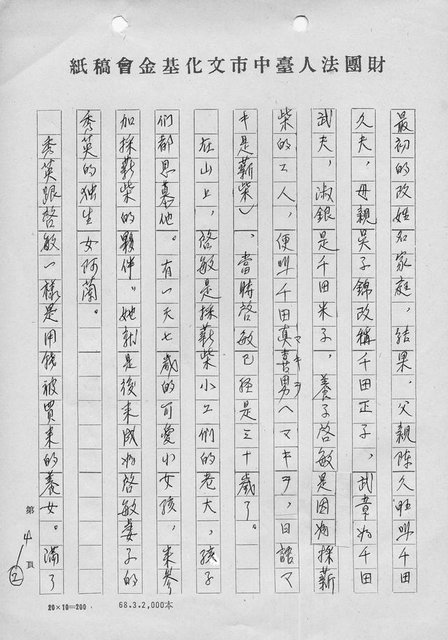 財團法人臺中市文化基金會稿紙
最初的改姓名家庭,結果,父親陳久旺叫千田
久夫,母親吳子錦改稱千田正子,武章為千田
武夫,淑銀是千田米子,養子啓敏是因為採薪
柴的工人,便叫千田真喜男(マキヲ,日語マ
キ是薪柴)。當時啓敏已經是三十歲了。
在山上,啓敏是採薪柴小工們的老大,孩子
們都思慕他。有一天七歲的可愛小女孩,來參
加採薪柴的夥伴。她就是後來成為啓敏妻子的
秀英的独生女阿蘭。
秀英跟啓敏一樣是用錢被買來的養女。滿了
マキヲ
第4頁
②
20×10=200
68.3.2,000本